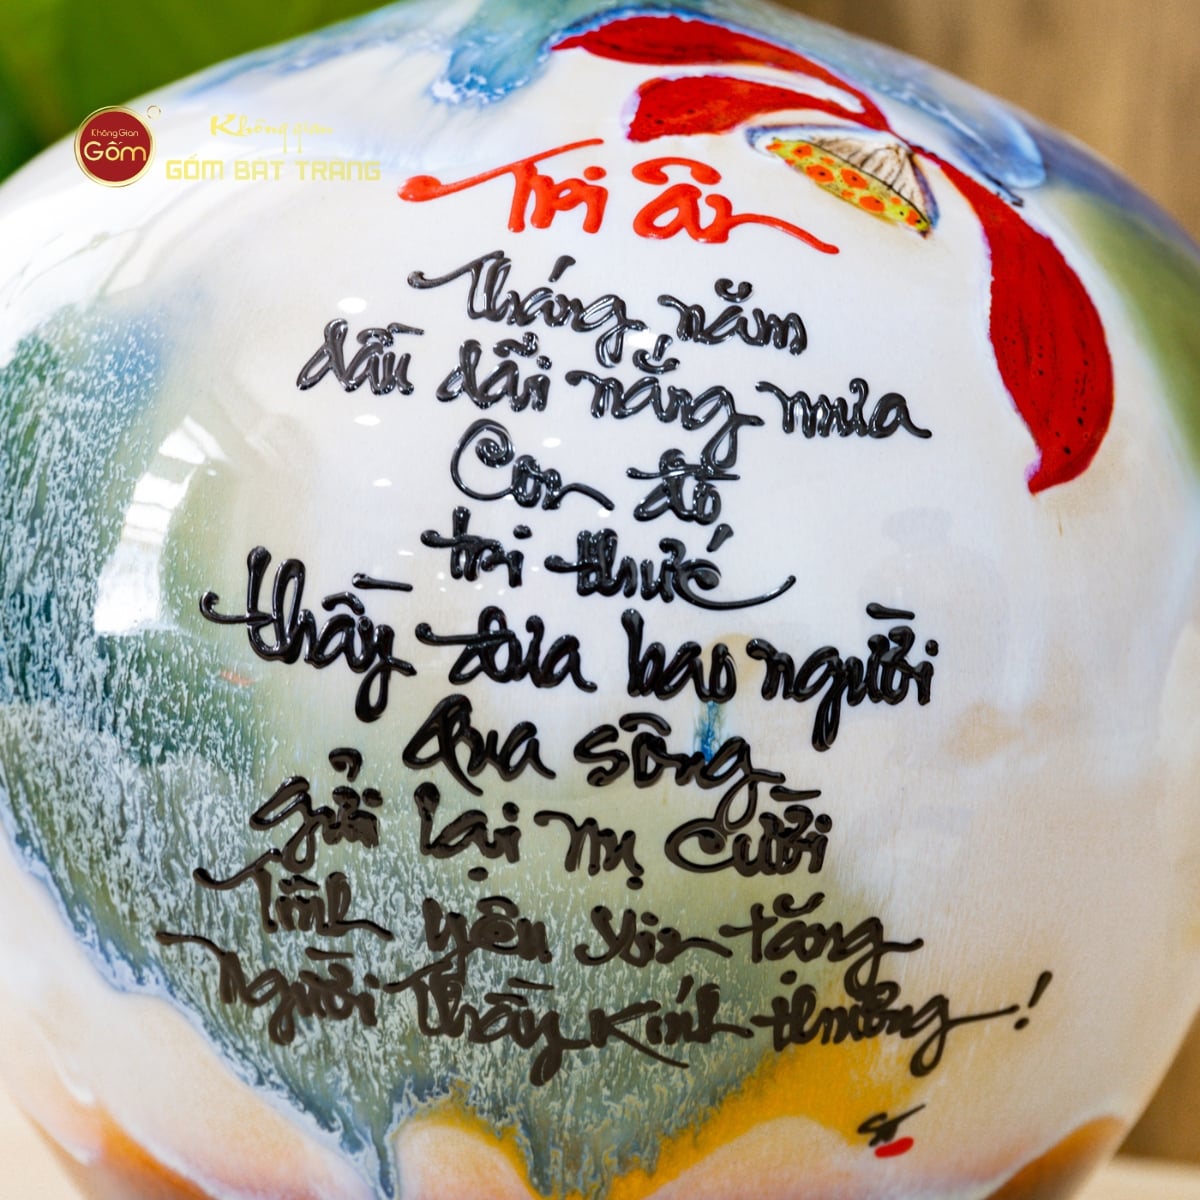 Không Gian
Gốm
Không gian
GỐM BÁT TRÀNG
Tri ân
Tháng năm
dầu dãi nắng mưa
Con đò
tri thức
thầy đưa bao người
Qua sông
gửi lại nụ cười
Tình yêu xin tặng
Người Thầy kính thương!